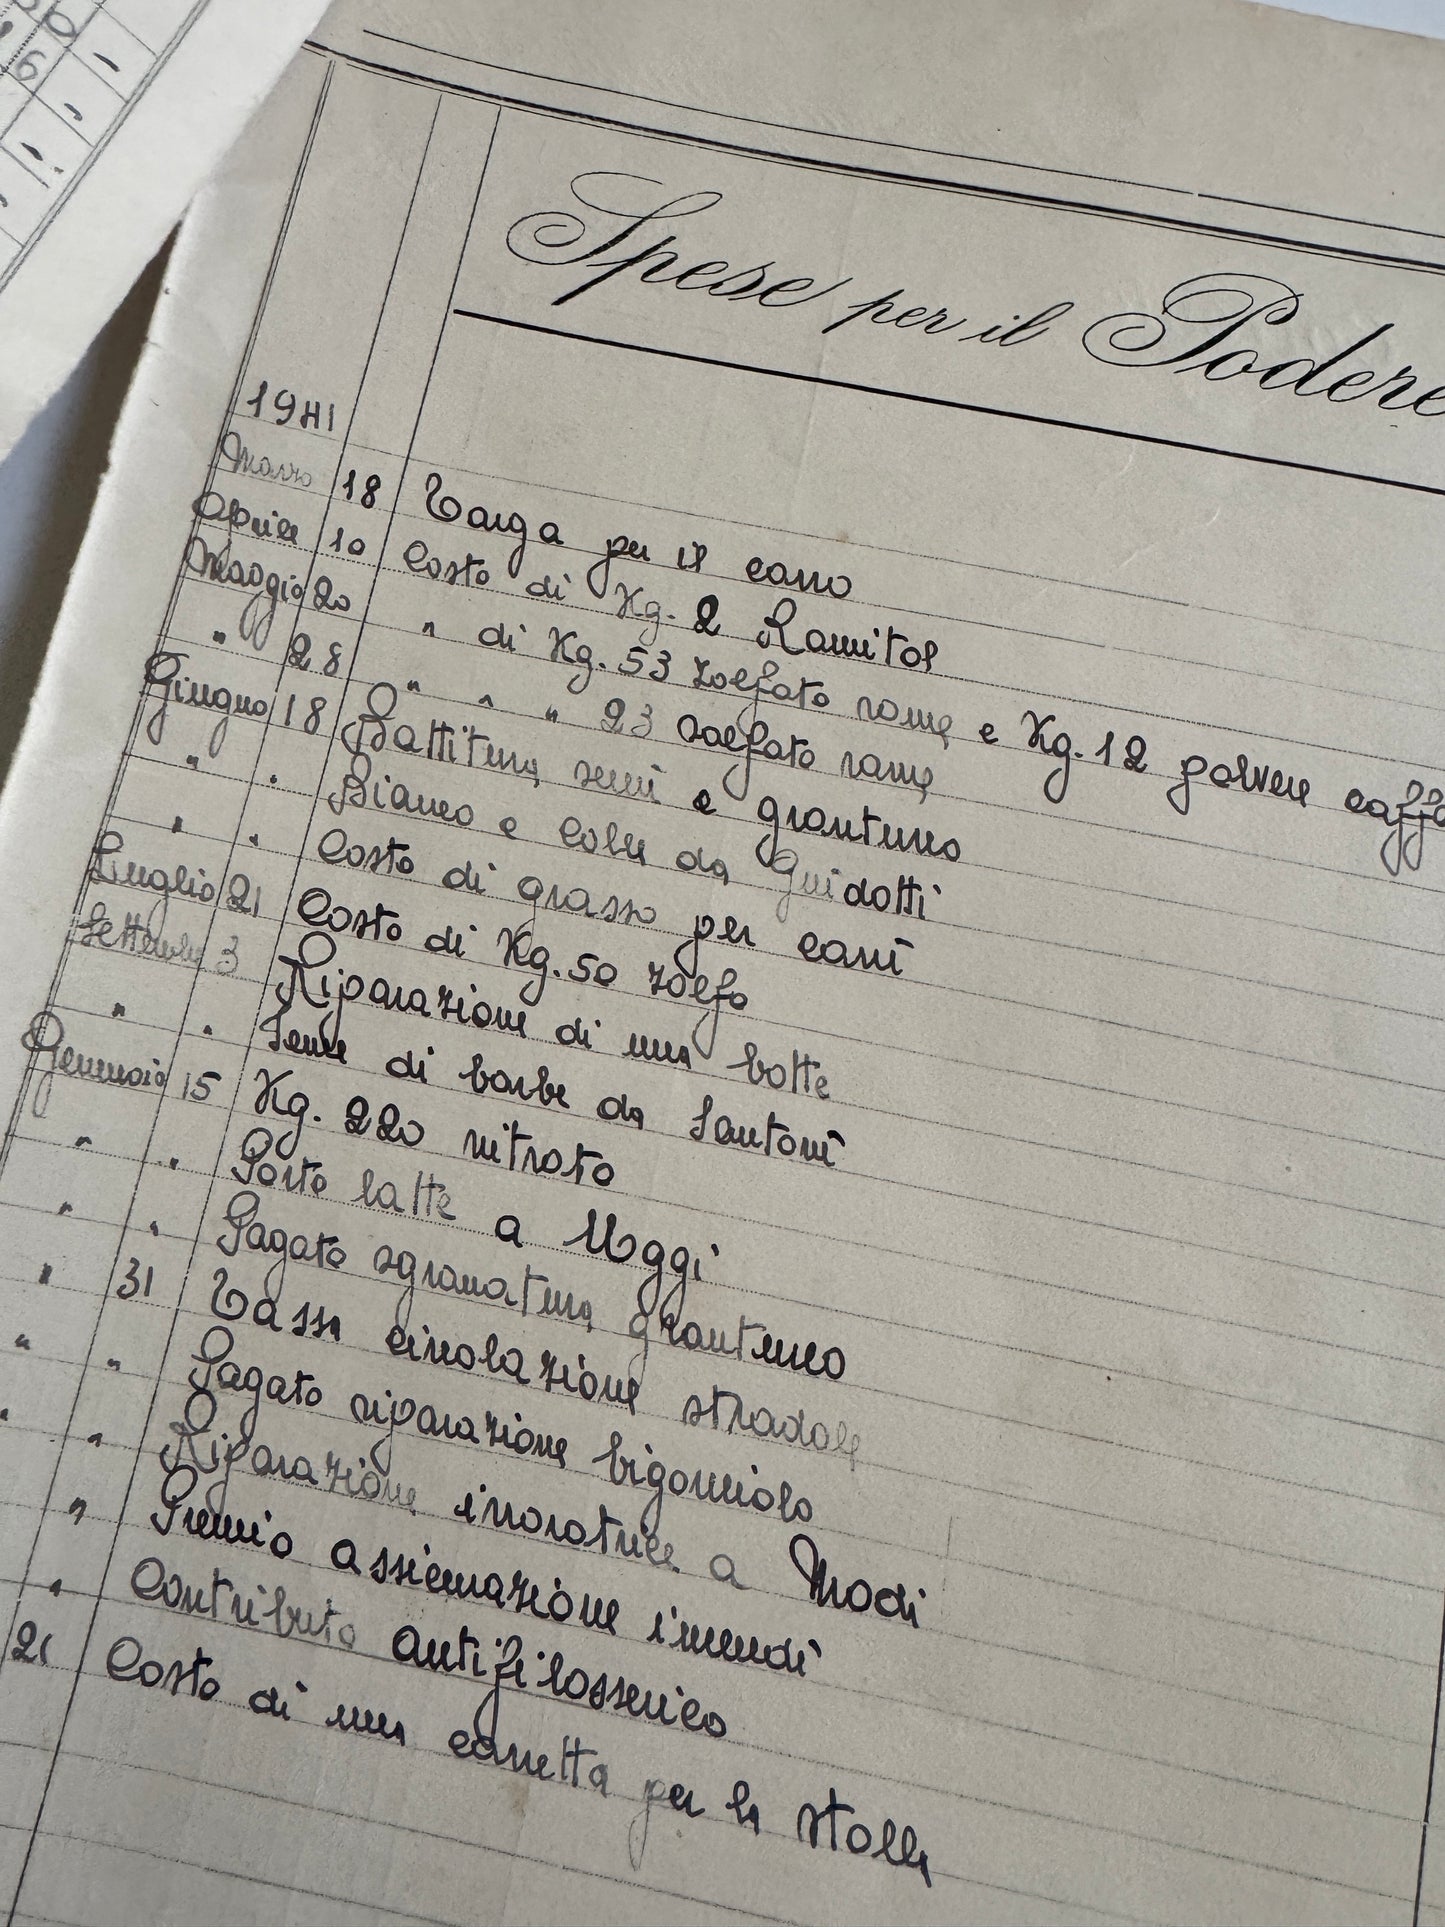 60
Spese per il Podere
1941
Marzo 18 Targa per il carro
Aprile 10 Costo di Kg. 2 Ramital
Maggio 20 " di Kg. 53 zolfato rame e Kg. 12 polvere caffa
" 28 " " " 23 solfato rame
Giugno 18 Battitura semi e granturco
" " Bianco e Colre da Guidotti
" " Costo di grasso per carri
Luglio 21 Costo di Kg. 50 zolfo
Settembre 3 Riparazione di una botte
" " Seme di barbe da Santoni
Gennaio 15 Kg. 220 nitrato
" " Porto latte a Moggi
" " Pagato sgranatura granturco
" 31 Tassa circolazione stradale
" " Pagato riparazione bigonciolo
" " Riparazione irroratrice a Modi
" Premio assicurazione incendi
" Contributo antifilosserico
21 Costo di una carretta per la stalla